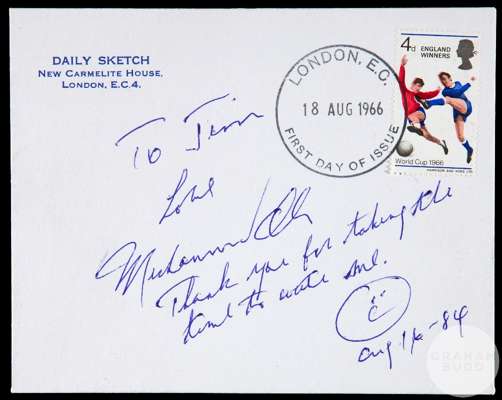 DAILY SKETCH
NEW CARMELITE HOUSE,
LONDON, E.C.4.
LONDON, E.C.
18 AUG 1966
FIRST DAY OF ISSUE
4d ENGLAND
WINNERS
World Cup 1966
HARRISON AND SONS LTD
To Jim
Love
Muhammad Ali
Thank you for taking the
time to write me.
Aug 16-84
GRAHAM
BUDD